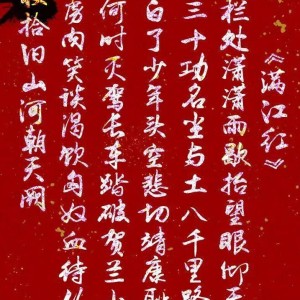 《满江红》
栏处潇潇雨歇抬望眼仰天
三十功名尘与土八千里路
白了少年头空悲切靖康耻
何时灭驾长车踏破贺兰山
虏肉笑谈渴饮匈奴血待
拾旧山河朝天阙